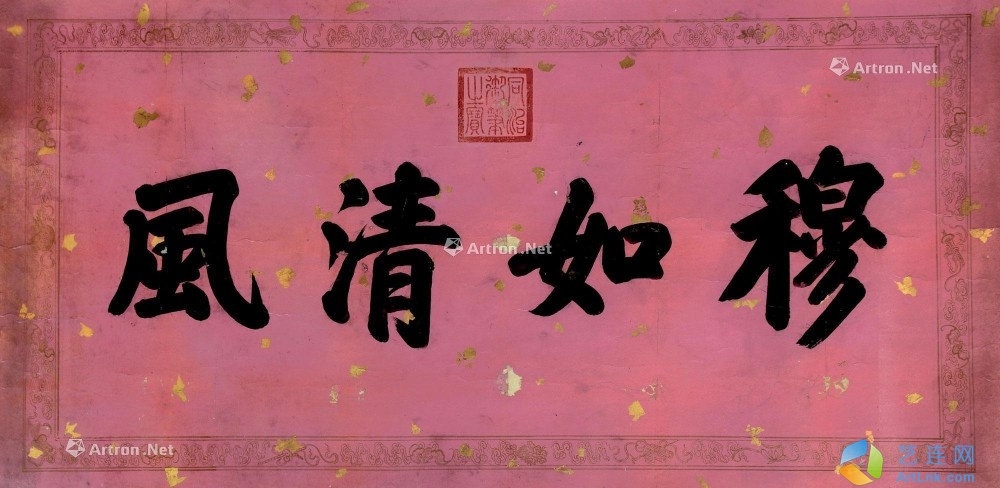 穆如清風
同治
御筆
之寶
Artron.Net
Artron.Net
Artron.Net
艺连网
ArtLnk.com